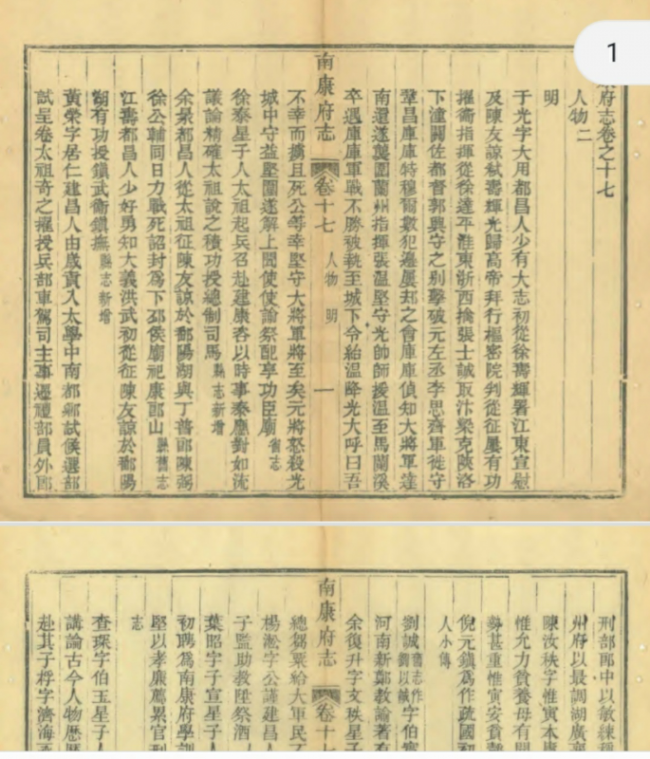 1
府志卷之十七
人物二
明
于光字大用都昌人少有大志初從徐壽輝署江東宣慰
及陳友諒弒壽輝光歸高帝拜行樞密院判從征屢有功
擢衞指揮從徐達平淮東浙西擒張士誠取汴梁克陝洛
下潼關佐都督郭興守之別擊破元左丞李思齊軍徙守
鞏昌庫庫特穆爾數犯邊屢却之會庫庫偵知大將軍達
南還遂襲圍蘭州指揮張溫堅守光帥師援溫至馬蘭溪
卒遇庫庫軍戰不勝被執至城下令紿溫降光大呼曰吾
南康府志 卷十七 人物 明 一
不幸而擄且死公等幸堅守大將軍將至矣元將怒殺光
城中守益堅圍遂解上聞使使諭祭配享功臣廟省志
徐泰星子人太祖起兵召赴建康客以時事泰應對如流
議論精確太祖說之積功授總制司馬縣志新增
余昺都昌人從太祖征陳友諒於鄱陽湖與丁普郎陳弼
徐公輔同日力戰死詔封爲下邳侯廟祀康郎山縣舊志
江壽都昌人少好勇知大義洪武初從征陳友諒於鄱陽
湖有功授鎮武衞鎮撫縣志新增
黃榮字居仁建昌人由歲貢入太學中南都鄉試候選部
試呈卷太祖奇之擢授兵部車駕司主事遷禮部員外郎
刑部郎中以敏練稱
州府以最調湖廣
陳汝秩字惟寅本廬
惟允力貧養母有聞
勢甚重惟寅安貧
倪元鎮爲作疏國初
人小傳
劉誠舊志作字伯
河南新鄭教諭著有
余復升字文珠星子
南康府志 卷十七
總芻粟給大軍民不
楊淞字公謹建昌人
子監助教陞祭酒
葉昭字子宣星子人
初聘爲南康府學訓
堅以孝廉薦累官刑
志
查琛字伯玉星子人
講論古今人物歷歷
赴其子桴字濟海